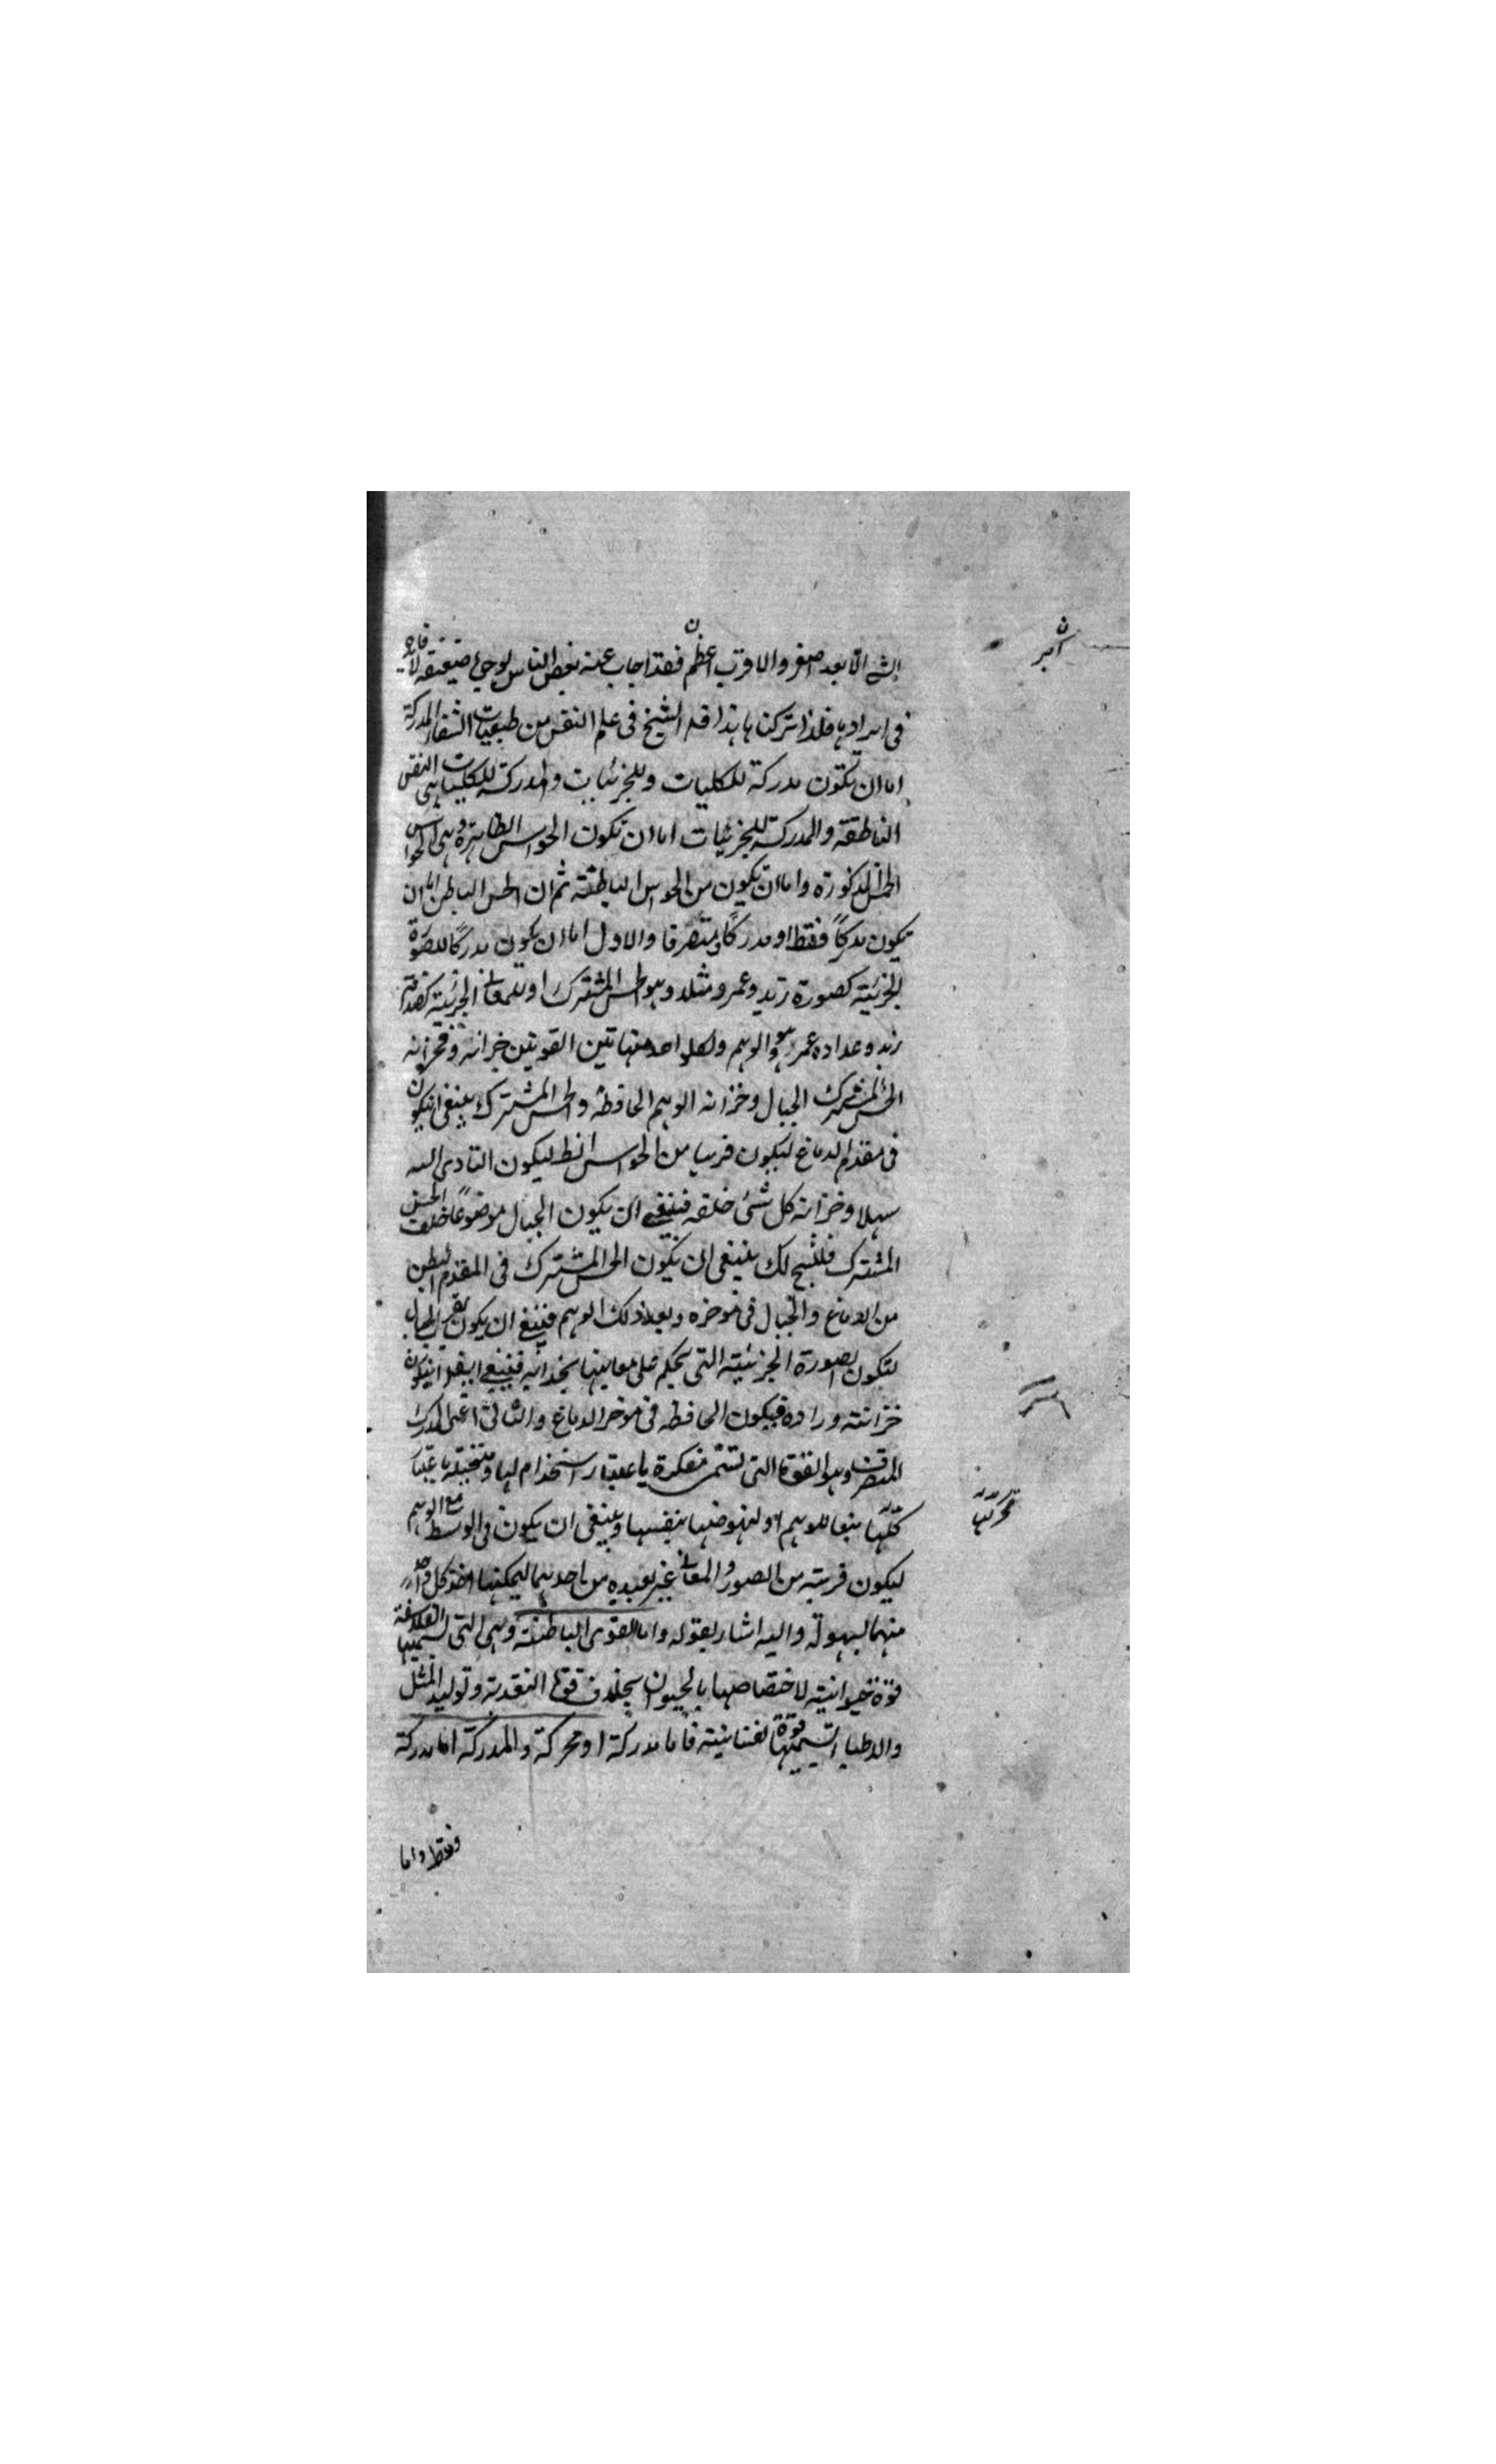 الشئ الابعد اصغر والاقرب اعظم فقد اجاب عنه بعض الناس لوجوه ضعيفة لا فايدة
في ايرادها فلذا تركناها هذا قد الشيخ في علم النفس من طبيعيات الشفاء المدركة
اما ان تكون مدركة للكليات وللجزئيات والمدركة للكليات هى النفس
الناطقة والمدركة للجزئيات اما ان تكون الحواس الظاهرة وهى الحواس
الخمس المذكورة واما ان تكون من الحواس الباطنة ثم ان الحس الباطن اما ان
يكون مدركاً فقط او مدركاً ومتصرفا والاول اما ان يكون مدركاً للصورة
الجزئية كصورة زيد وعمرو مثلا وهو الحس المشترك او للمعانى الجزئية كصداقة
زيد وعداوة عمرو وهو الوهم ولكل واحد من هاتين القوتين خزانة فخزانة
الحس المشترك الخيال وخزانة الوهم الحافظة والحس المشترك ينبغى ان يكون
فى مقدم الدماغ ليكون قريبا من الحواس الظ ليكون التادى اليه
سهلا وخزانة كل شئ خلفه فينبغى ان يكون الخيال موضوعاً خلف الحس
المشترك فلنتج لك ينبغى ان يكون الحس المشترك فى المقدم البطن
من الدماغ والخيال فى موخره وبعد ذلك الوهم فينبغى ان يكون بقرب الخيال
لتكون الصورة الجزئية التى يحكم على معاينها بحذائه فينبغى ايضا ان يكون
خزانته وراه فيكون الحافظه فى موخر الدماغ والثانى اعنى المدرك
المتصرف وهو القوة التى تسمى مفكرة باعتبار استخدام لها ومتخيلة باعتبار
كلها تبعا للوهم او لنهوضها بنفسها وينبغى ان يكون فى الوسط مع الوهم
ليكون قريبة من الصور والمعانى غير بعيدة من احدهما ليمكنها اخذ كل واحد
منهما بسهولة واليه اشار بقوله واما القوى الباطنة وهى التى تسميها الفلاسفة
قوة حيوانية لاختصاصها بالحيوان بخلاف قوة التغذية وتوليد المثل
والاطباء تسميها قوة نفسانية فاما مدركة او محركة والمدركة اما مدركة
فقط واما
اكبر